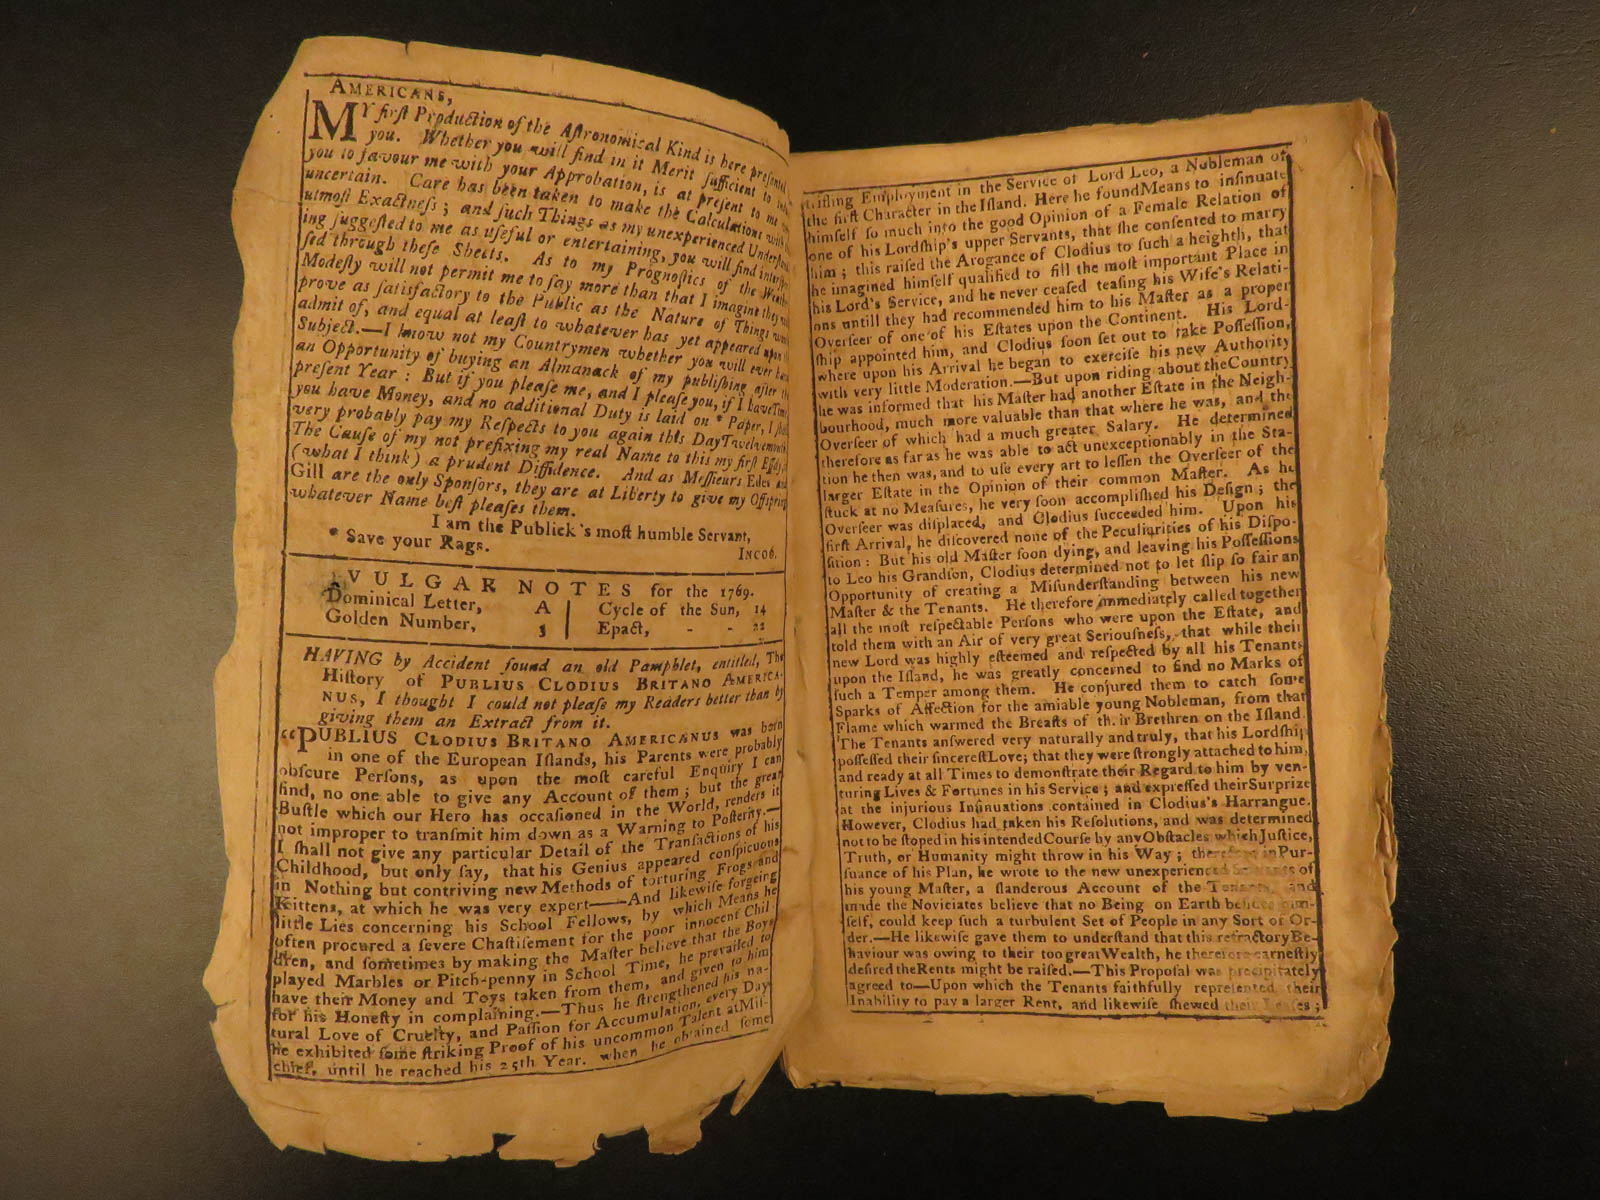 AMERICANS,
MY firſt Production of the Aſtronomical Kind is here preſented
you. Whether you will find in it Merit ſufficient to
you to favour me with your Approbation, is at preſent to me
uncertain. Care has been taken to make the Calculations with
utmoſt Exactneſs; and ſuch Things as my unexperienced
ing ſuggeſted to me as uſeful or entertaining, you will find
ſed through theſe Sheets. As to my Prognoſtics of the
Modeſty will not permit me to ſay more than that I imagine they
prove as ſatisfactory to the Public as the Nature of Things
admit of, and equal at leaſt to whatever has yet appeared upon
Subject.—I know not my Countrymen whether you will ever have
an Opportunity of buying an Almanack of my publiſhing after the
preſent Year: But if you pleaſe me, and I pleaſe you, if I have Time
you have Money, and no additional Duty is laid on * Paper, I ſhall
very probably pay my Reſpects to you again this Day Twelvemonth
The Cauſe of my not prefixing my real Name to this my firſt Eſſay
(what I think) a prudent Diffidence. And as Meſſieurs Edes and
Gill are the only Sponſors, they are at Liberty to give my Offspring
whatever Name beſt pleaſes them.
I am the Publick's moſt humble Servant,
* Save your Rags.
INCOG.
VULGAR NOTES for the 1769.
Dominical Letter, A | Cycle of the Sun, 14
Golden Number, 3 | Epact, - - 22
HAVING by Accident found an old Pamphlet, entitled, The
Hiſtory of PUBLIUS CLODIUS BRITANO AMERICA-
NUS, I thought I could not pleaſe my Readers better than by
giving them an Extract from it.
“PUBLIUS CLODIUS BRITANO AMERICANUS was born
in one of the European Iſlands, his Parents were probably
obſcure Perſons, as upon the moſt careful Enquiry I can
find, no one able to give any Account of them; but the great
Buſtle which our Hero has occaſioned in the World, renders it
not improper to tranſmit him down as a Warning to Poſterity.—
I ſhall not give any particular Detail of the Tranſactions of his
Childhood, but only ſay, that his Genius appeared conſpicuous
in Nothing but contriving new Methods of torturing Frogs and
Kittens, at which he was very expert——And likewiſe forgeing
little Lies concerning his School Fellows, by which Means he
often procured a ſevere Chaſtiſement for the poor innocent Chil-
dren, and ſometimes by making the Maſter believe that the Boys
played Marbles or Pitch-penny in School Time, he prevailed to
have their Money and Toys taken from them, and given to him
for his Honeſty in complaining.—Thus he ſtrengthened his na-
tural Love of Cruelty, and Paſſion for Accumulation, every Day
he exhibited ſome ſtriking Proof of his uncommon Talent at Miſ-
chief, until he reached his 25th Year. when he obtained ſome
trifling Employment in the Service of Lord Leo, a Nobleman of
the firſt Character in the Iſland. Here he found Means to inſinuate
himſelf ſo much into the good Opinion of a Female Relation of
one of his Lordſhip's upper Servants, that ſhe conſented to marry
him; this raiſed the Arogance of Clodius to ſuch a heighth, that
he imagined himſelf qualified to fill the moſt important Place in
his Lord's Service, and he never ceaſed teaſing his Wife's Relati-
ons untill they had recommended him to his Maſter as a proper
Overſeer of one of his Eſtates upon the Continent. His Lord-
ſhip appointed him, and Clodius ſoon ſet out to take Poſſeſſion,
where upon his Arrival he began to exerciſe his new Authority
with very little Moderation.—But upon riding about the Country
he was informed that his Maſter had another Eſtate in the Neigh-
bourhood, much more valuable than that where he was, and the
Overſeer of which had a much greater Salary. He determined
therefore as far as he was able to act unexceptionably in the Sta-
tion he then was, and to uſe every art to leſſen the Overſeer of the
larger Eſtate in the Opinion of their common Maſter. As he
ſtuck at no Meaſures, he very ſoon accompliſhed his Deſign; the
Overſeer was diſplaced, and Clodius ſucceeded him. Upon his
firſt Arrival, he diſcovered none of the Peculiarities of his Diſpo-
ſition: But his old Maſter ſoon dying, and leaving his Poſſeſſions
to Leo his Grandſon, Clodius determined not to let ſlip ſo fair an
Opportunity of creating a Miſunderſtanding between his new
Maſter & the Tenants. He therefore immediately called together
all the moſt reſpectable Perſons who were upon the Eſtate, and
told them with an Air of very great Seriouſneſs, that while their
new Lord was highly eſteemed and reſpected by all his Tenants
upon the Iſland, he was greatly concerned to find no Marks of
ſuch a Temper among them. He conjured them to catch ſome
Sparks of Affection for the amiable young Nobleman, from that
Flame which warmed the Breaſts of their Brethren on the Iſland.
The Tenants anſwered very naturally and truly, that his Lordſhip
poſſeſſed their ſincereſt Love; that they were ſtrongly attached to him,
and ready at all Times to demonſtrate their Regard to him by ven-
turing Lives & Fortunes in his Service; and expreſſed their Surprize
at the injurious Inſinuations contained in Clodius's Harrangue.
However, Clodius had taken his Reſolutions, and was determined
not to be ſtoped in his intended Courſe by any Obſtacles which Juſtice,
Truth, or Humanity might throw in his Way; therefore in Pur-
ſuance of his Plan, he wrote to the new unexperienced Servants of
his young Maſter, a ſlanderous Account of the Tenants, and
made the Noviciates believe that no Being on Earth beſides him-
ſelf, could keep ſuch a turbulent Set of People in any Sort of Or-
der.—He likewiſe gave them to underſtand that this refractory Be-
haviour was owing to their too great Wealth, he therefore earneſtly
deſired the Rents might be raiſed.—This Propoſal was precipitately
agreed to—Upon which the Tenants faithfully repreſented their
Inability to pay a larger Rent, and likewiſe ſhewed their Leaſes;